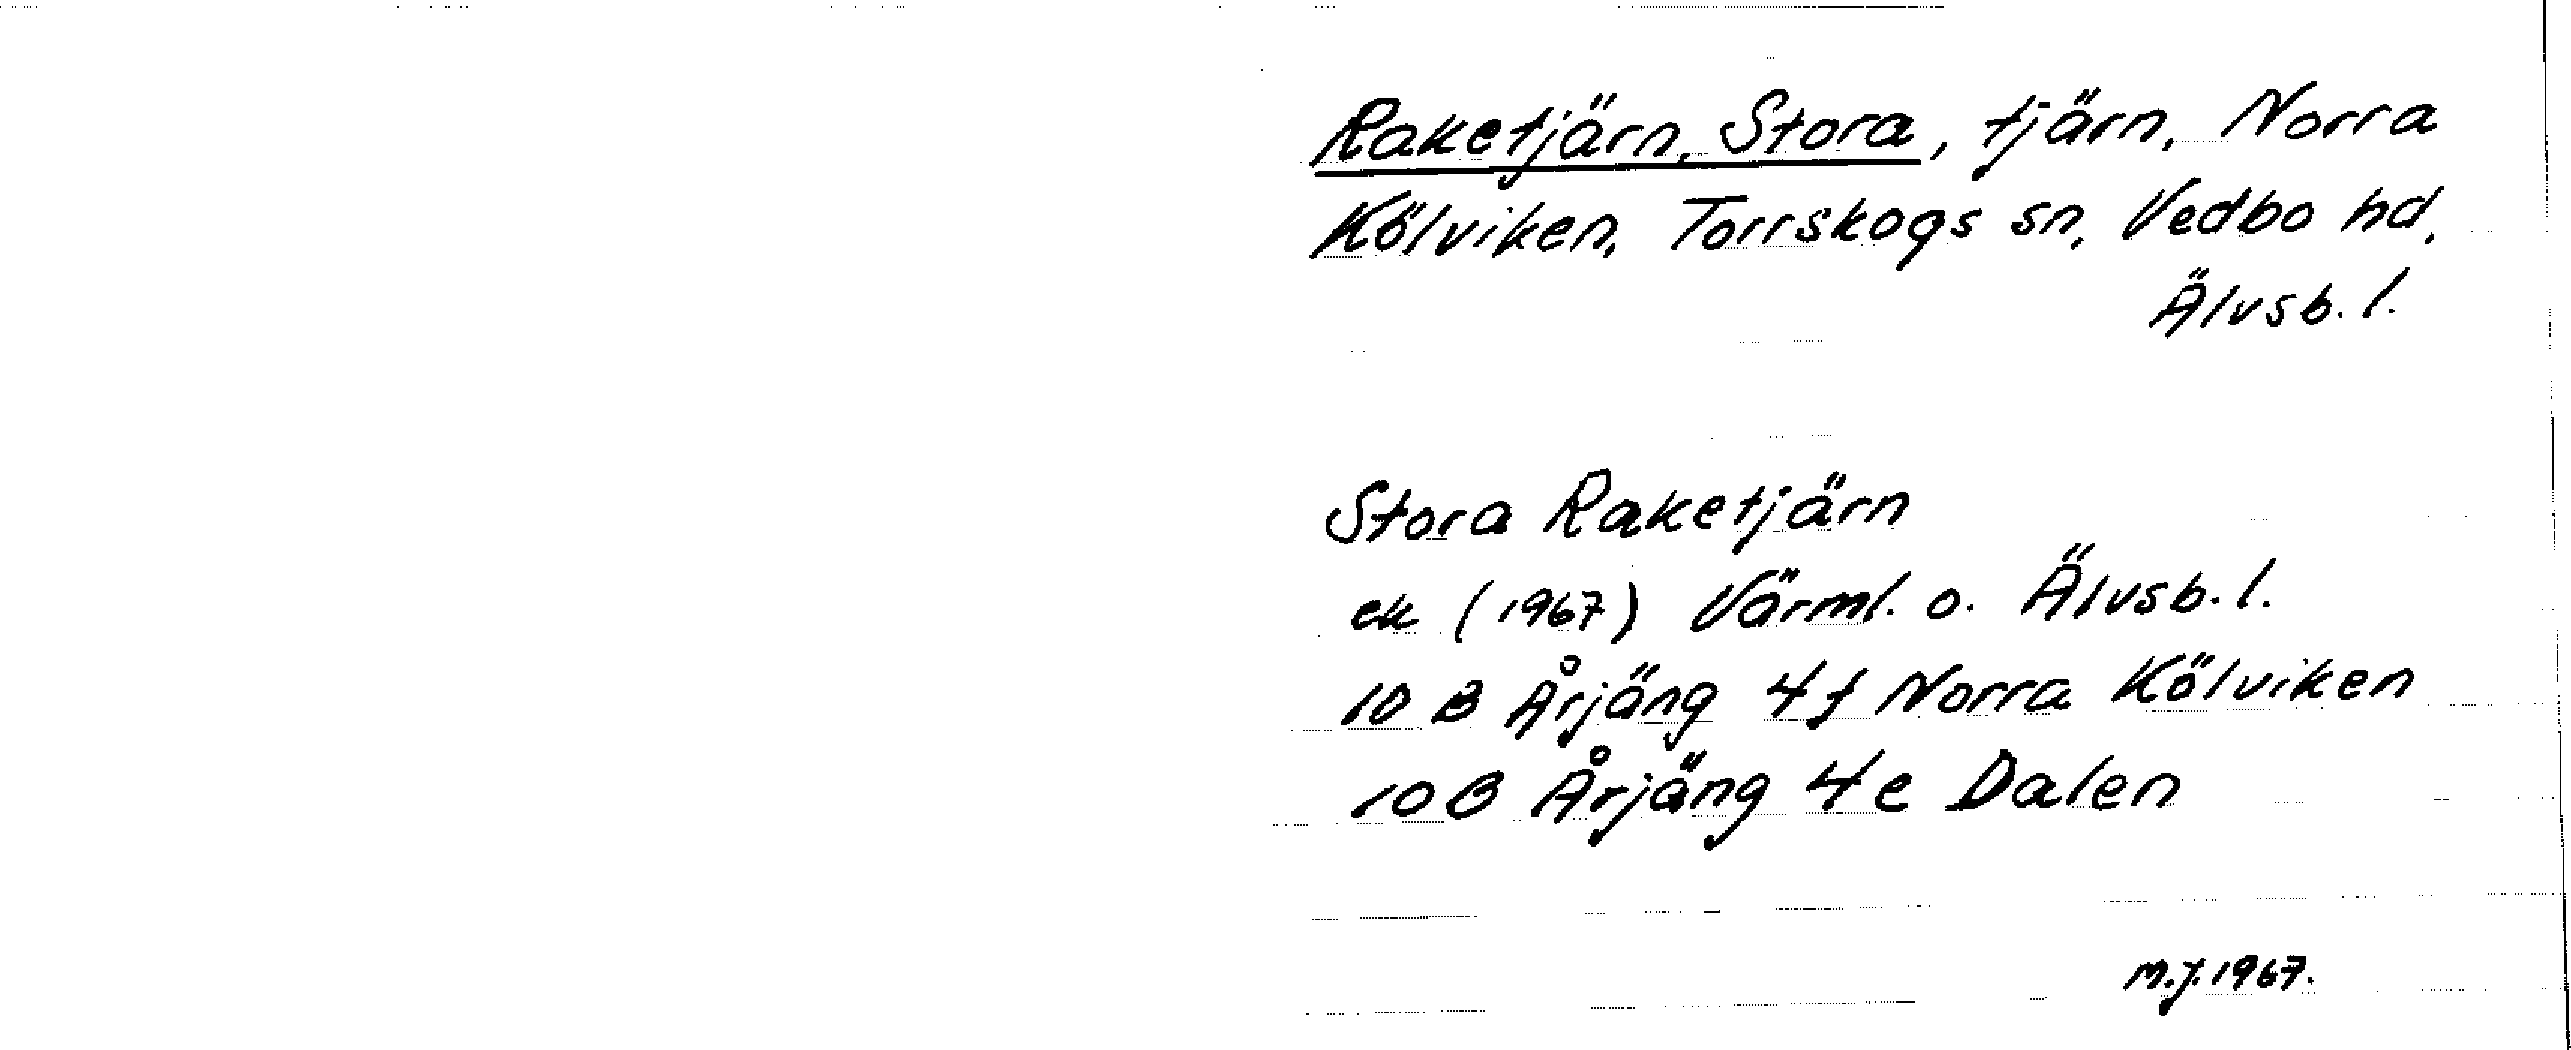 Raketjärn, Stora, tjärn, Norra
Kölviken, Torrskogs sn, Vedbo hd,
Älvsb. l.
Stora Raketjärn
ek (1967) Värml. o. Älvsb. l.
10 B Årjäng 4f Norra Kölviken
10 B Årjäng 4e Dalen
M.J. 1967.